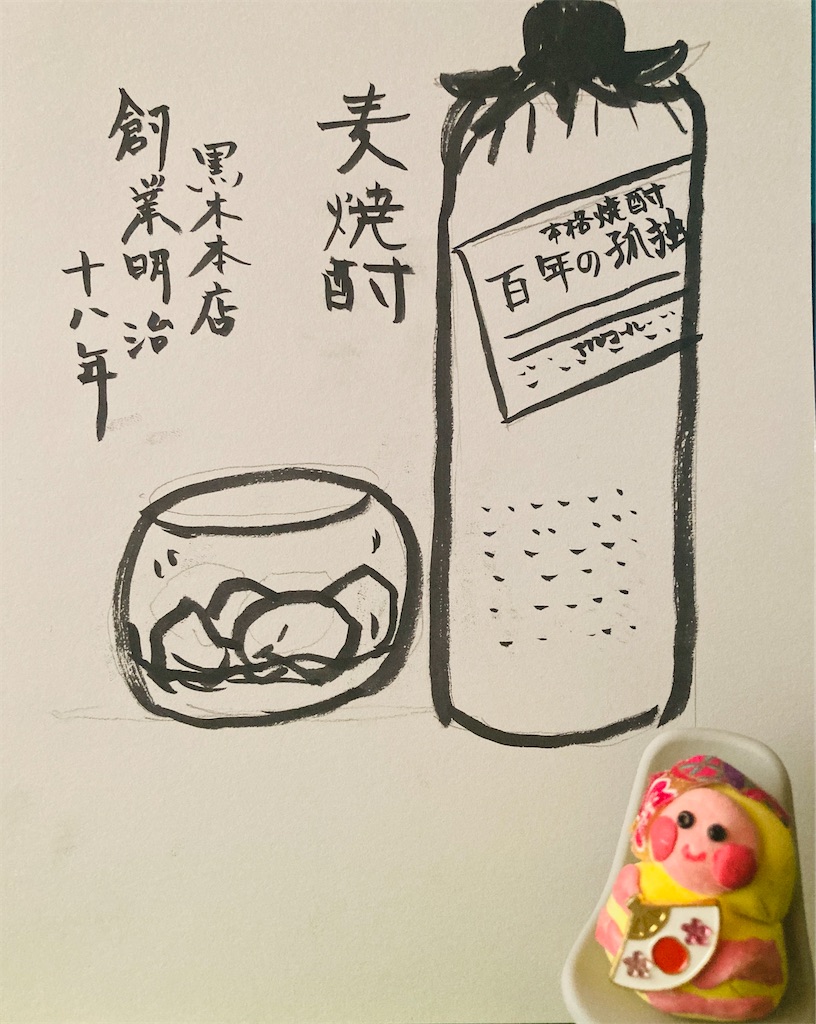 本格焼酎
百年の孤独
アルコール
麦焼酎
黒木本店
創業明治
十八年